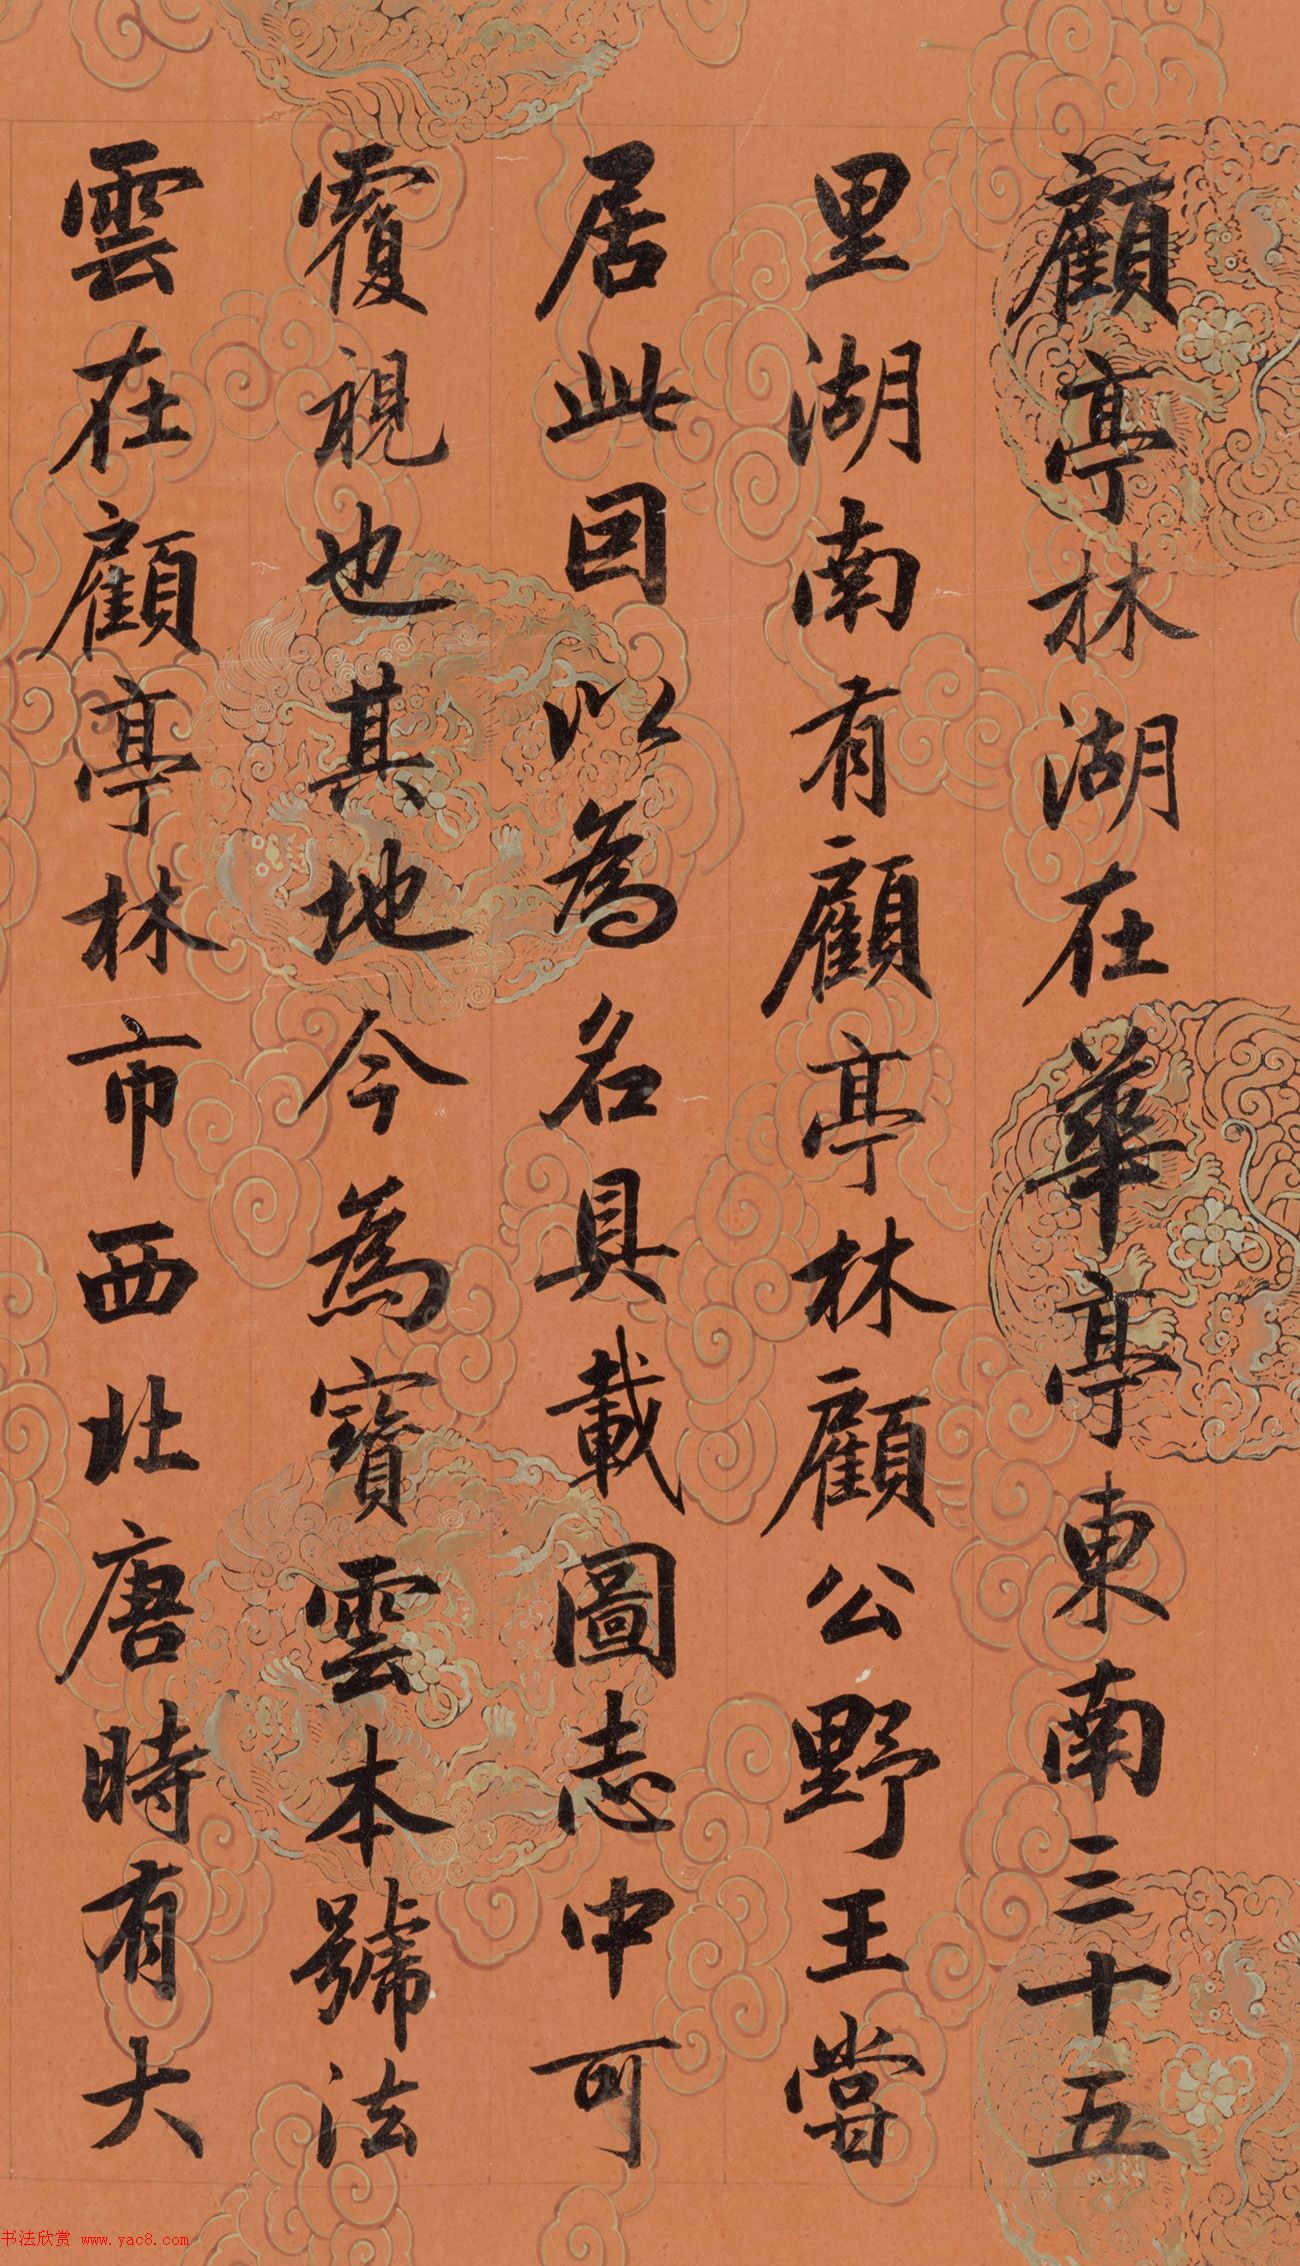 顧亭林湖在華亭東南三十五
里湖南有顧亭林顧公野王嘗
居此因以為名具載圖志中可
覆視也其地今為寶雲本號法
雲在顧亭林市西北唐時有大
书法欣赏 www.yac8.com